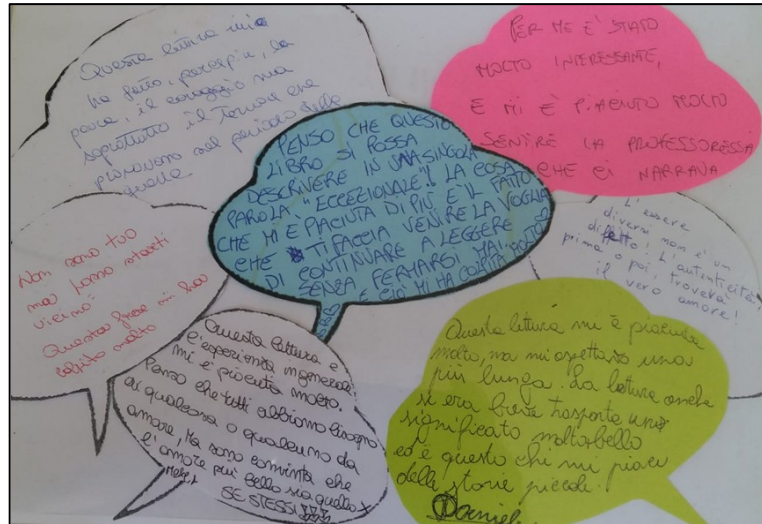 Questa lettura mi
ha fatto percepire la
paura, il coraggio ma
soprattutto il Terrore che
provavano nel periodo della
guerra
PER ME E' STATO
MOLTO INTERESSANTE,
E MI È PIACIUTO MOLTO
SENTIRE LA PROFESSORESSA
CHE CI NARRAVA
PENSO CHE QUESTO
LIBRO SI POSSA
DESCRIVERE IN UNA SINGOLA
PAROLA "ECCEZIONALE"! LA COSA
CHE MI È PIACIUTA DI PIÙ E' IL FATTO
CHE TI FACCIA VENIRE LA VOGLIA
DI CONTINUARE A LEGGERE
SENZA FERMARSI MAI
E CIÒ MI HA COLPITA MOLTO
Non sono tuo
ma posso starti
vicino"
Questa frase mi ha
colpito molto
L'essere
diversi non è un
difetto! L'autenticità,
prima o poi, troverà
il vero amore!
Questa lettura e
l'esperienza in generale
mi è piaciuta molto.
Penso che tutti abbiamo bisogno
di qualcosa o qualcuno da
amare, Ma sono convinta che
l'amore più bello sia quello x
SE STESSI
Questa lettura mi è piaciuta
molto, ma mi aspettavo una
più lunga. La lettura anche
si era breve trasporta uno
significato molto bello
ed è questo chi mi piace
delle storie piccole.
Daniel